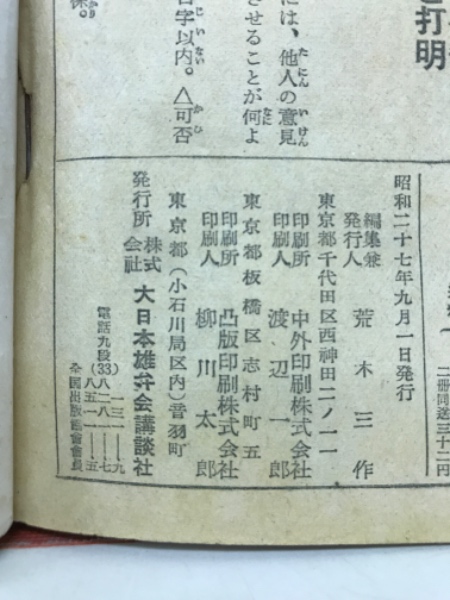 打明
には、他人の意見
させることが何よ
字以内。△可否
昭和二十七年九月一日発行
編集兼
発行人 荒木三作
東京都千代田区西神田二ノ一一
印刷所 中外印刷株式会社
印刷人 渡辺一郎
東京都板橋区志村町五
印刷所 凸版印刷株式会社
印刷人 柳川太郎
東京都(小石川局区内)音羽町
発行所 株式会社 大日本雄弁会講談社
電話九段(33)
全国出版協会会員
二冊同送三十二円